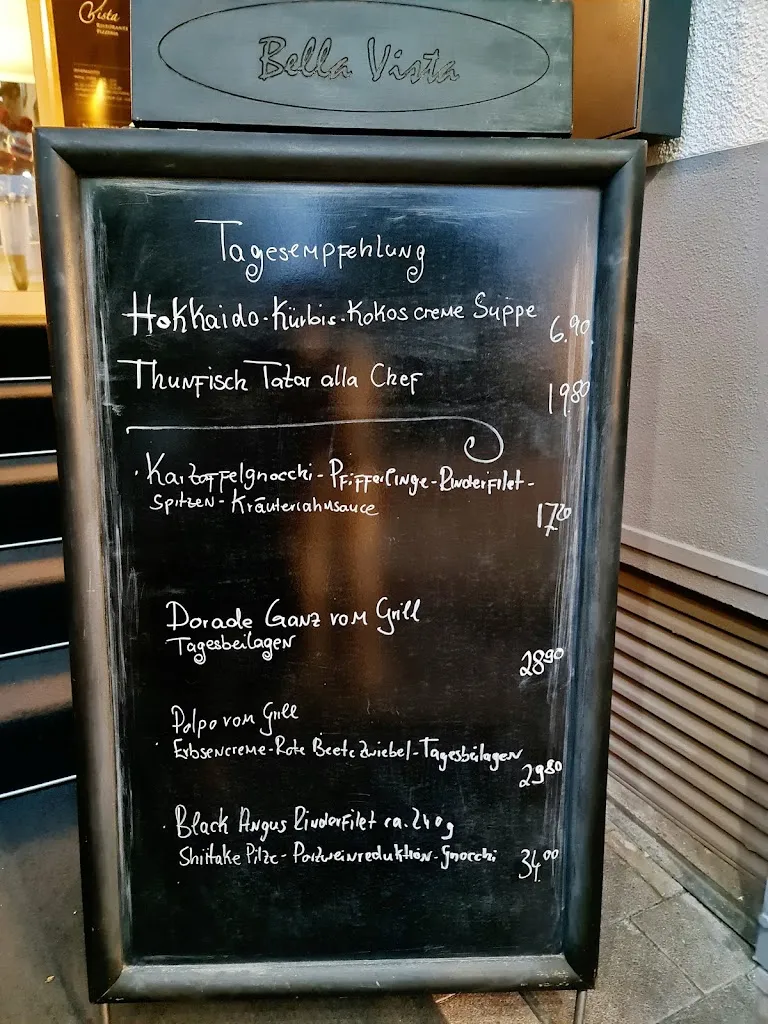 Vista
RISTORANTE
PIZZERIA
Bella Vista
Tagesempfehlung
Hokkaido-Kürbis-Kokoscreme Suppe
6.90
Thunfisch Tatar alla Chef
19.80
Kartoffelgnocchi-Pfifferlinge-Rinderfilet-
Spitzen-Kräuterrahmsauce
17.20
Dorade Ganz vom Grill
Tagesbeilagen
28.90
Polpo vom Grill
Erbsencreme-Rote Beete Zwiebel-Tagesbeilagen
29.80
Black Angus Rinderfilet ca. 240g
Shiitake Pilze-Portweinreduktion-Gnocchi
34.00